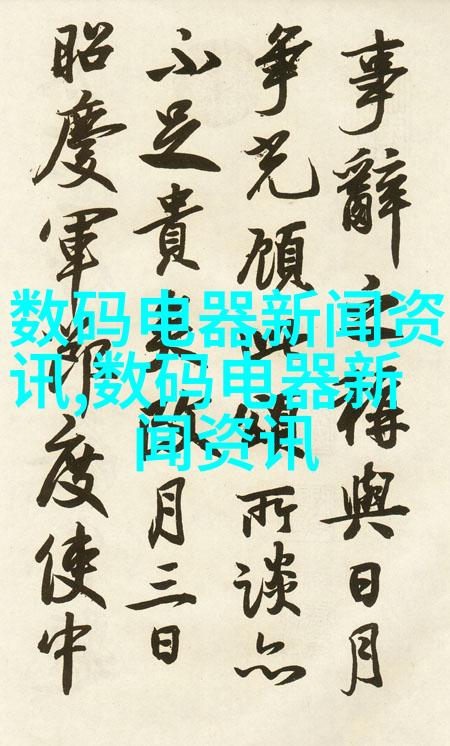 事辭之得與日月
争光顧此頌所談亦
不足貴月三日
昭慶軍節度使中
数码电器新闻资
讯,数码电器新
闻资讯